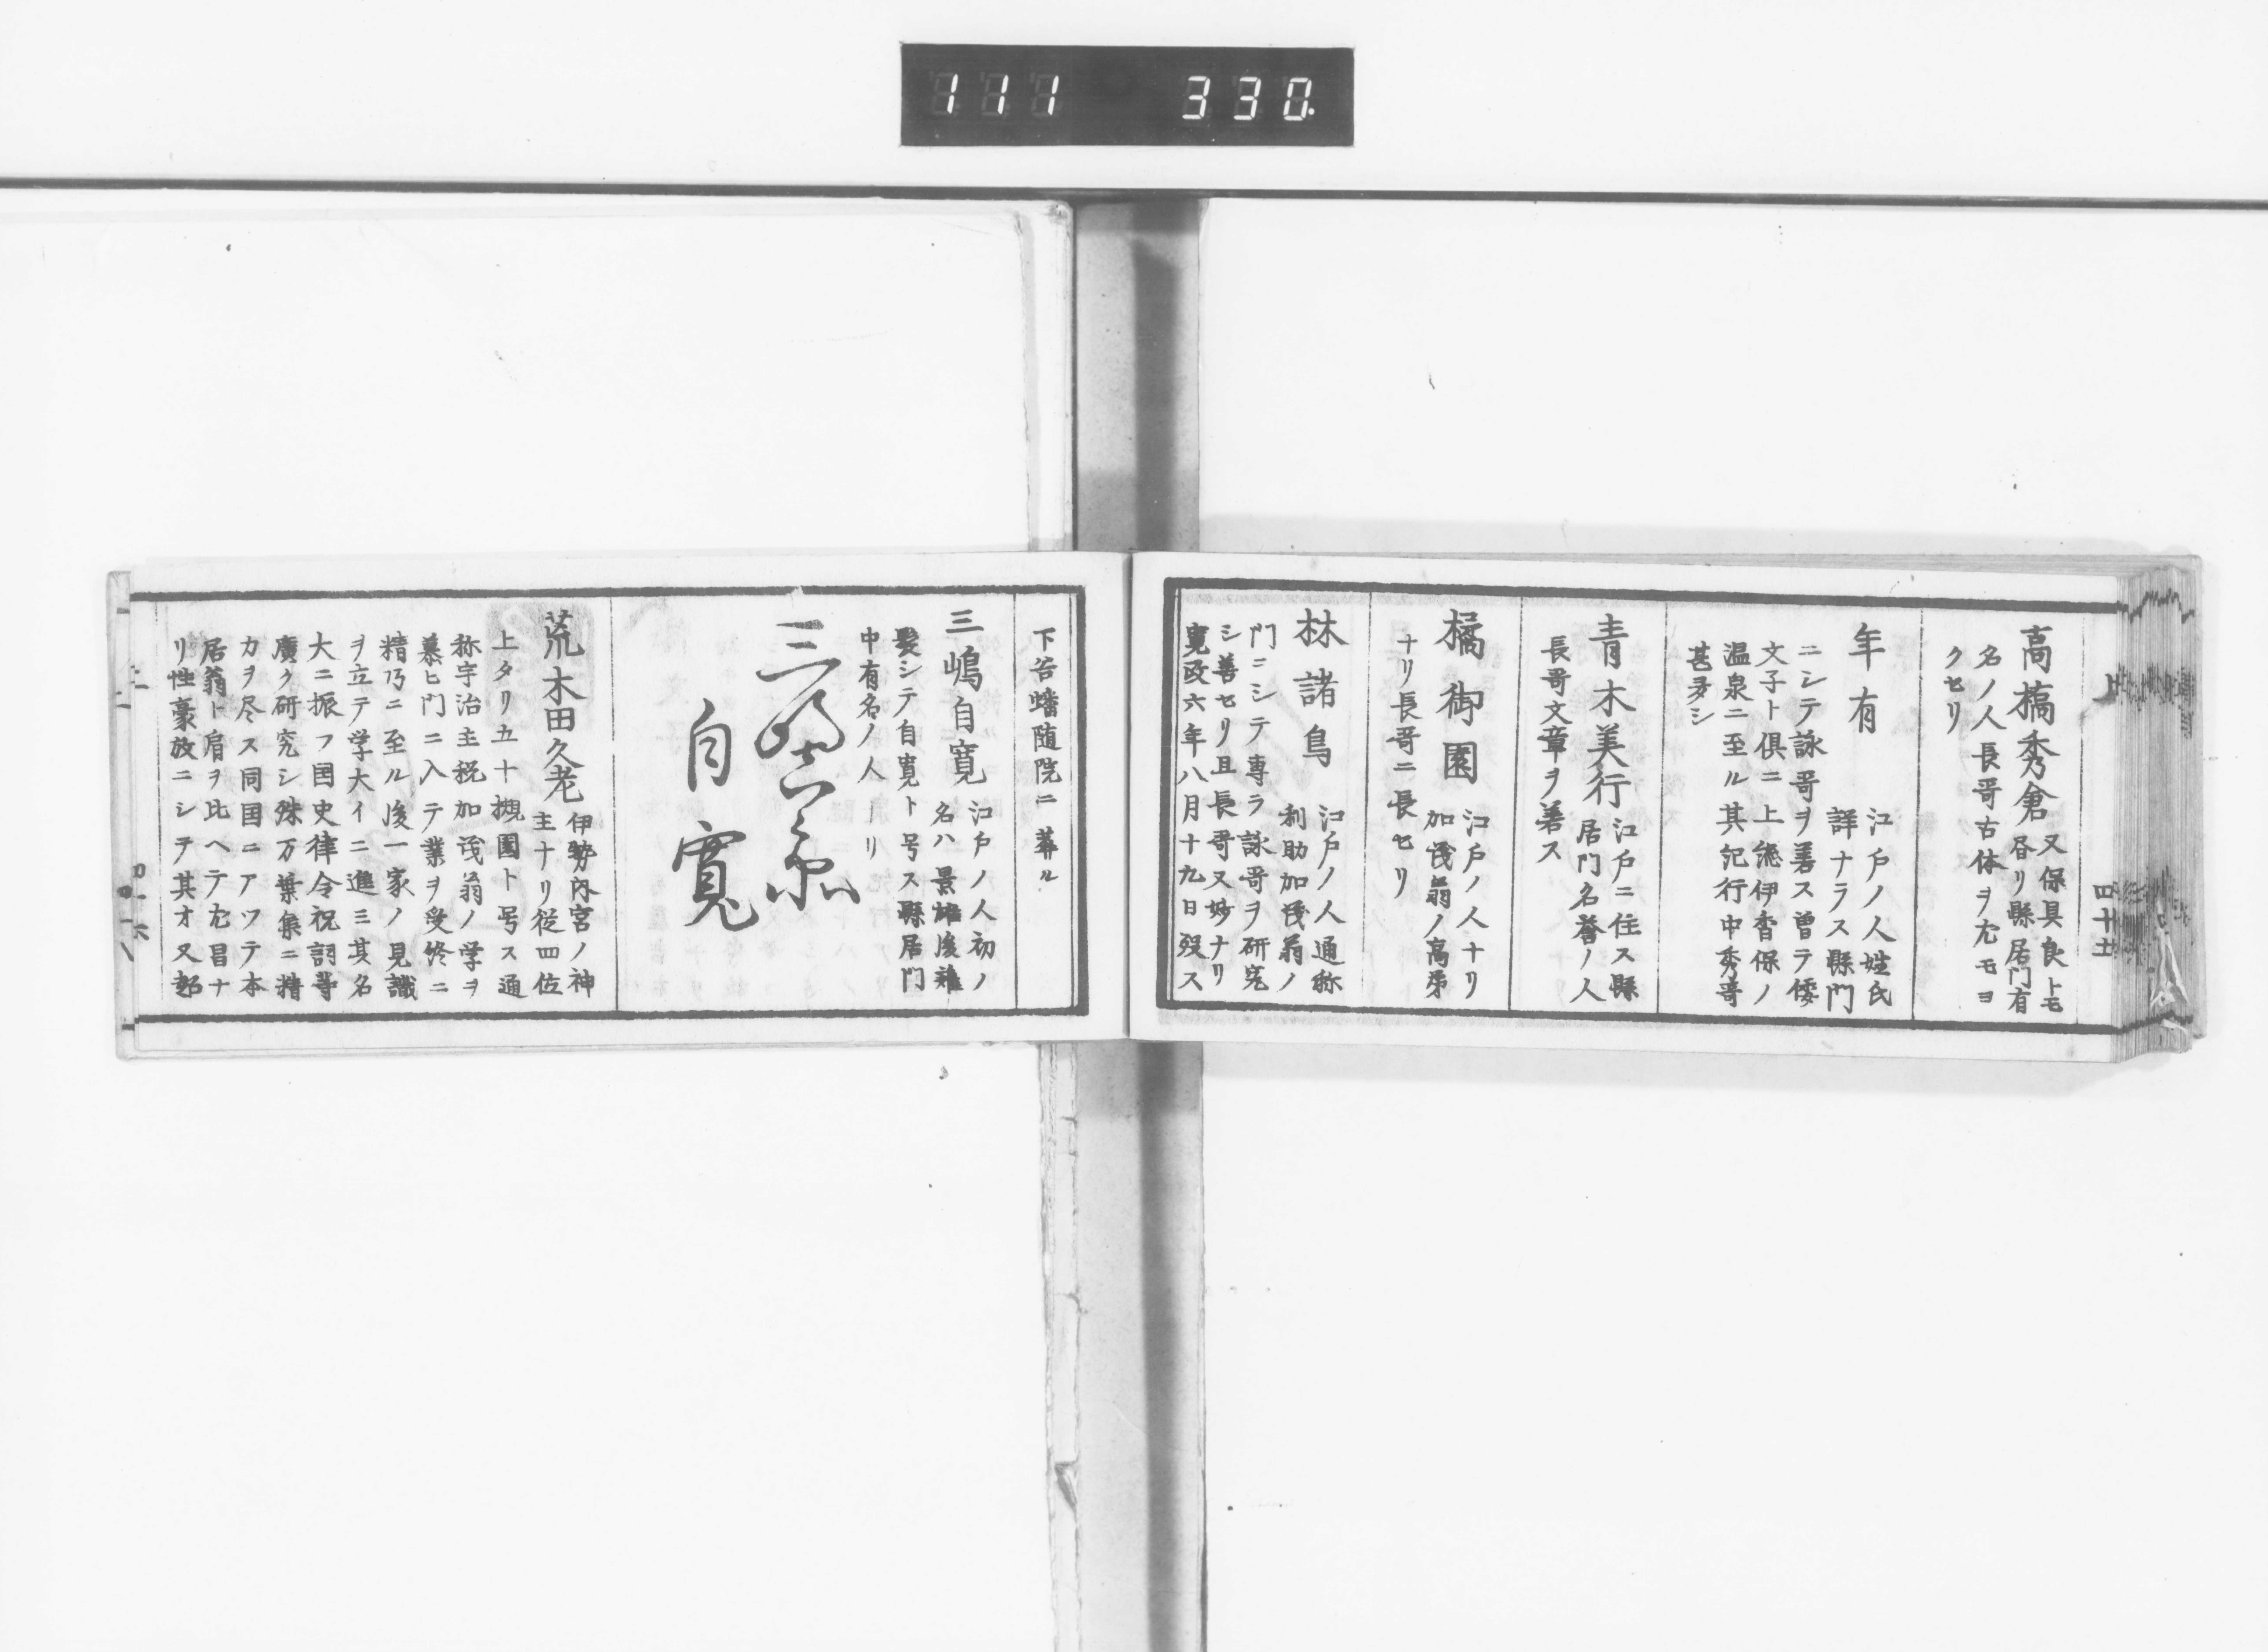 111 330.
上
四十七
高橋秀倉 又保具良トモ
名ノ人長哥古体ヲ尤モヨ
クセリ
年有 江戸ノ人姓氏
詳ナラス縣門
ニシテ詠哥ヲ善ス曽テ倭
文子ト倶ニ上総伊香保ノ
温泉ニ至ル其紀行中秀哥
甚多シ
青木美行 江戸ニ住ス縣
居門名誉ノ人
長哥文章ヲ善ス
橘御園 江戸ノ人ナリ
加茂翁ノ高弟
ナリ長哥ニ長セリ
林諸鳥 江戸ノ人通称
利助加茂翁ノ
門ニシテ専ラ詠哥ヲ研究
シ善セリ且長哥又妙ナリ
寛政六年八月十九日歿ス
下谷幡随院ニ葬ル
三嶋自寛 江戸ノ人初ノ
名ハ景雄後薙
髪シテ自寛ト号ス縣居門
中有名ノ人ナリ
自寛
荒木田久老 伊勢内宮ノ神
主ナリ従四位
上タリ五十槻園ト号ス通
称宇治主税加茂翁ノ学ヲ
慕ヒ門ニ入テ業ヲ受終ニ
精乃ニ至ル後一家ノ見識
ヲ立テ学大イニ進ミ其名
大ニ振フ国史律令祝詞等
廣ク研究シ殊万葉集ニ精
力ヲ尽ス同国ニアツテ本
居翁ト肩ヲ比ヘテ尤昌ナ
リ性豪放ニシテ其才又超